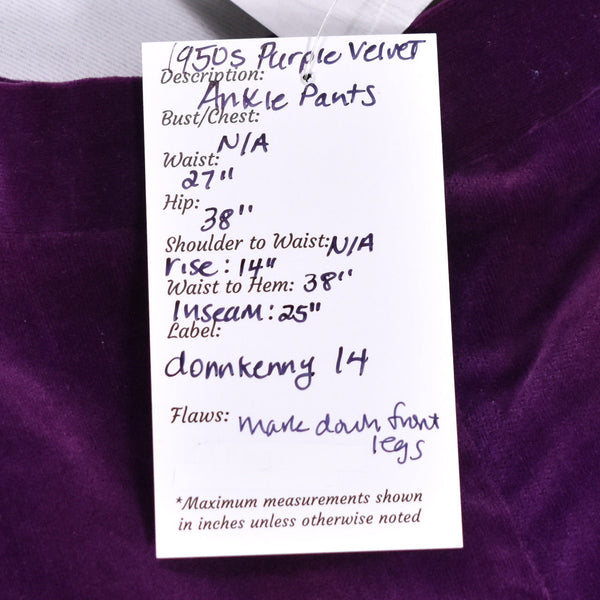 1950s Purple Velvet
Description:
Ankle Pants
Bust/Chest:
N/A
Waist:
27"
Hip:
38"
Shoulder to Waist: N/A
rise: 14"
Waist to Hem: 38"
Inseam: 25"
Label:
donnkenny 14
Flaws: mark down front
legs
*Maximum measurements shown
in inches unless otherwise noted